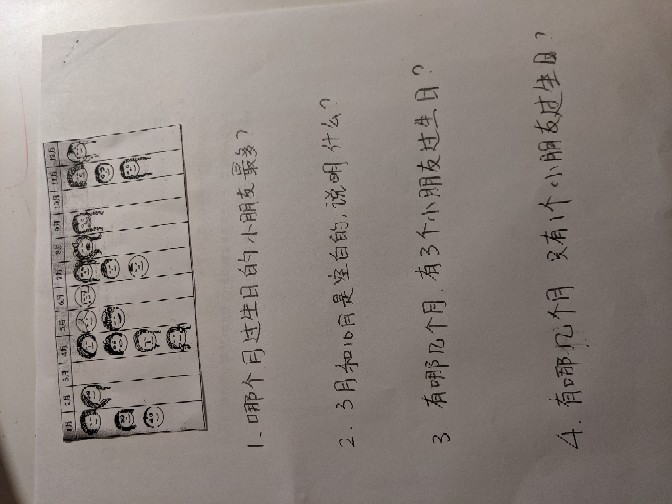 1月 2月 3月 4月 5月 6月 7月 8月 9月 10月 11月 12月
1、哪个月过生日的小朋友最多?
2、3月和10月是空白的,说明什么?
3 有哪几个月,有3个小朋友过生日?
4、有哪几个月 只有1个小朋友过生日?